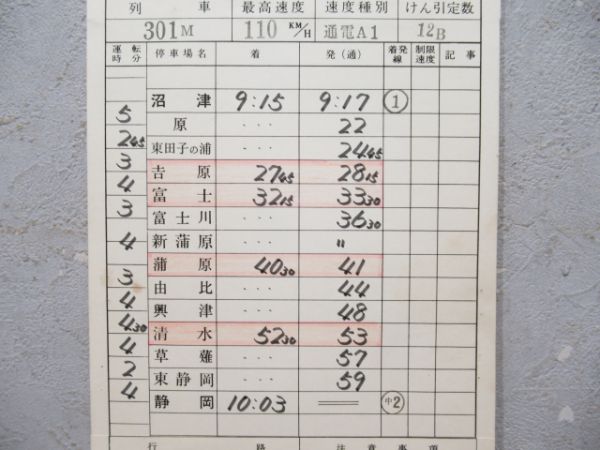 列車 最高速度 速度種別 けん引定数
301M 110KM/H 通電A1 12B
運転時分 停車場名 着 発(通) 着発線 制限速度 記事
沼津 9:15 9:17 ①
5
原 ... 22
2 45
東田子の浦 ... 24 45
3
吉原 27 45 28 15
4
富士 32 15 33 30
3
富士川 ... 36 30
新蒲原 〃
4
蒲原 40 30 41
3
由比 ... 44
4
興津 ... 48
4 30
清水 52 30 53
4
草薙 ... 57
2
東静岡 ... 59
4
静岡 10:03 ═ 中2
行路 注意事項